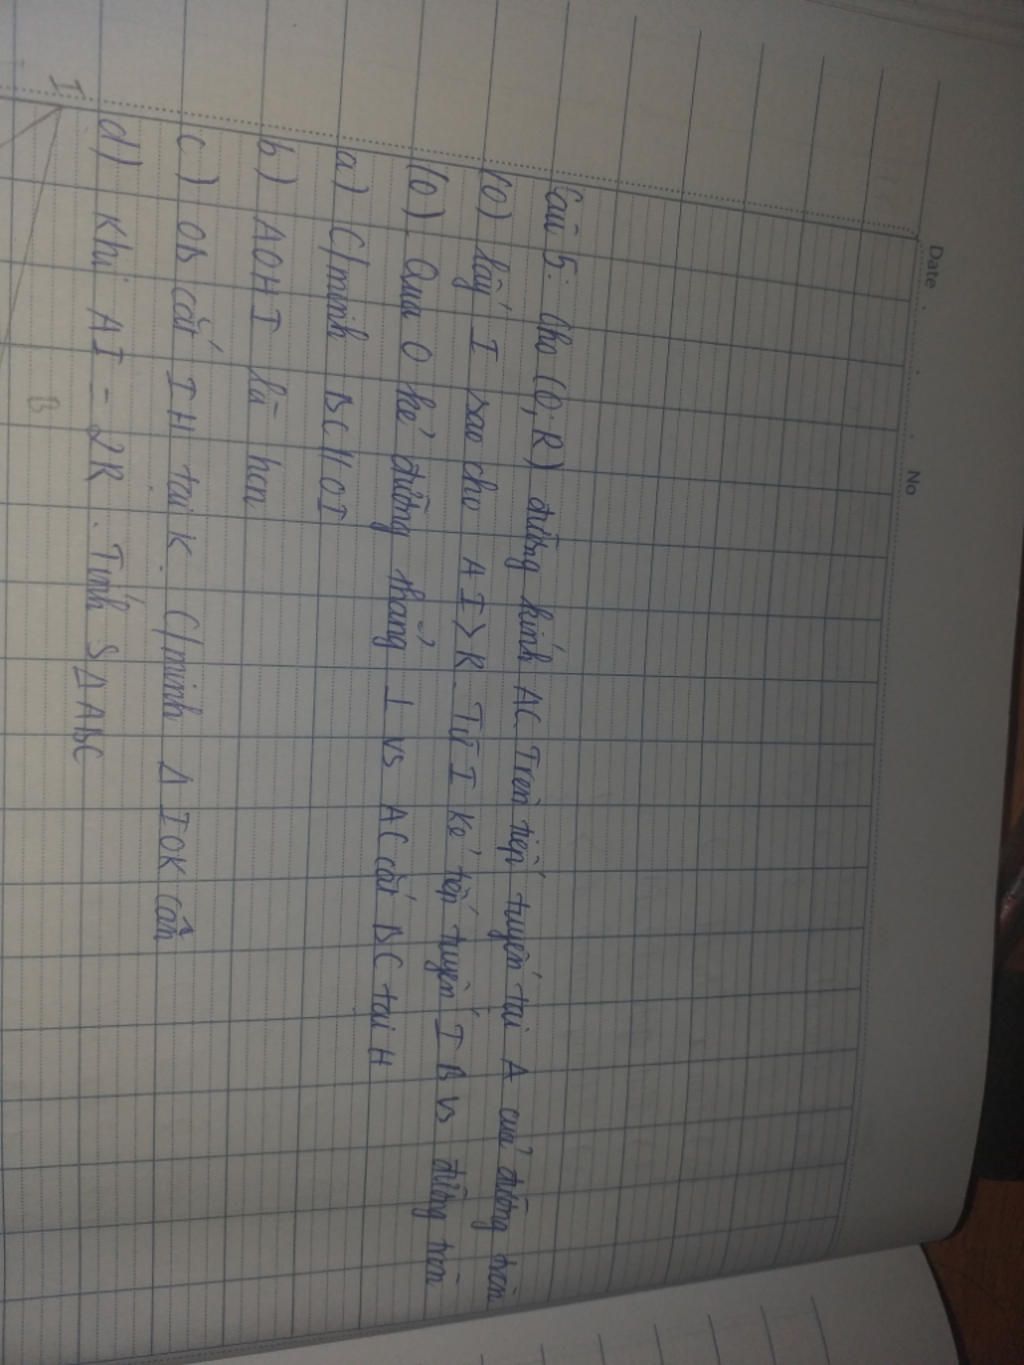 Date . . .
No
Câu 5: Cho (O; R) đường kính AC Trên tiếp tuyến tại A của đường tròn
(O) lấy I sao cho AI > R. Từ I kẻ tiếp tuyến IB vs đường tròn
(O). Qua O kẻ đường thẳng ⊥ vs AC cắt BC tại H
a) C/minh BC // OI
b) AOHI là hcn
c) OB cắt IH tại K. C/minh Δ IOK cân
d) Khi AI = 2R. Tính SΔABC
I
B